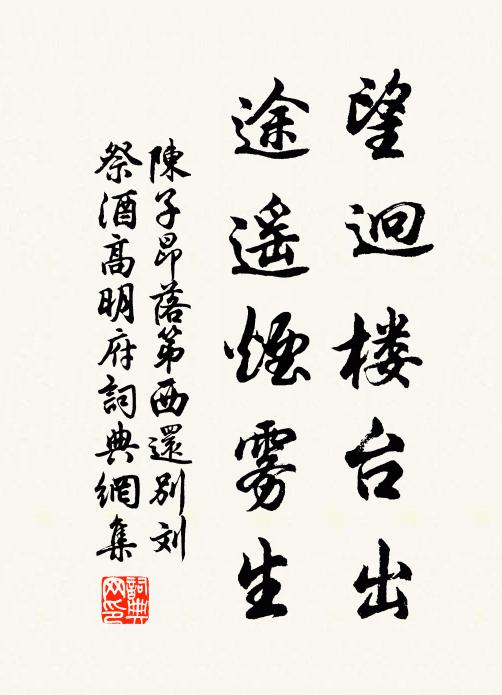 望迥楼台出
途遥煙雾生
陳子昂落第西還別刘
祭酒高明府詞典網集
詞典网印